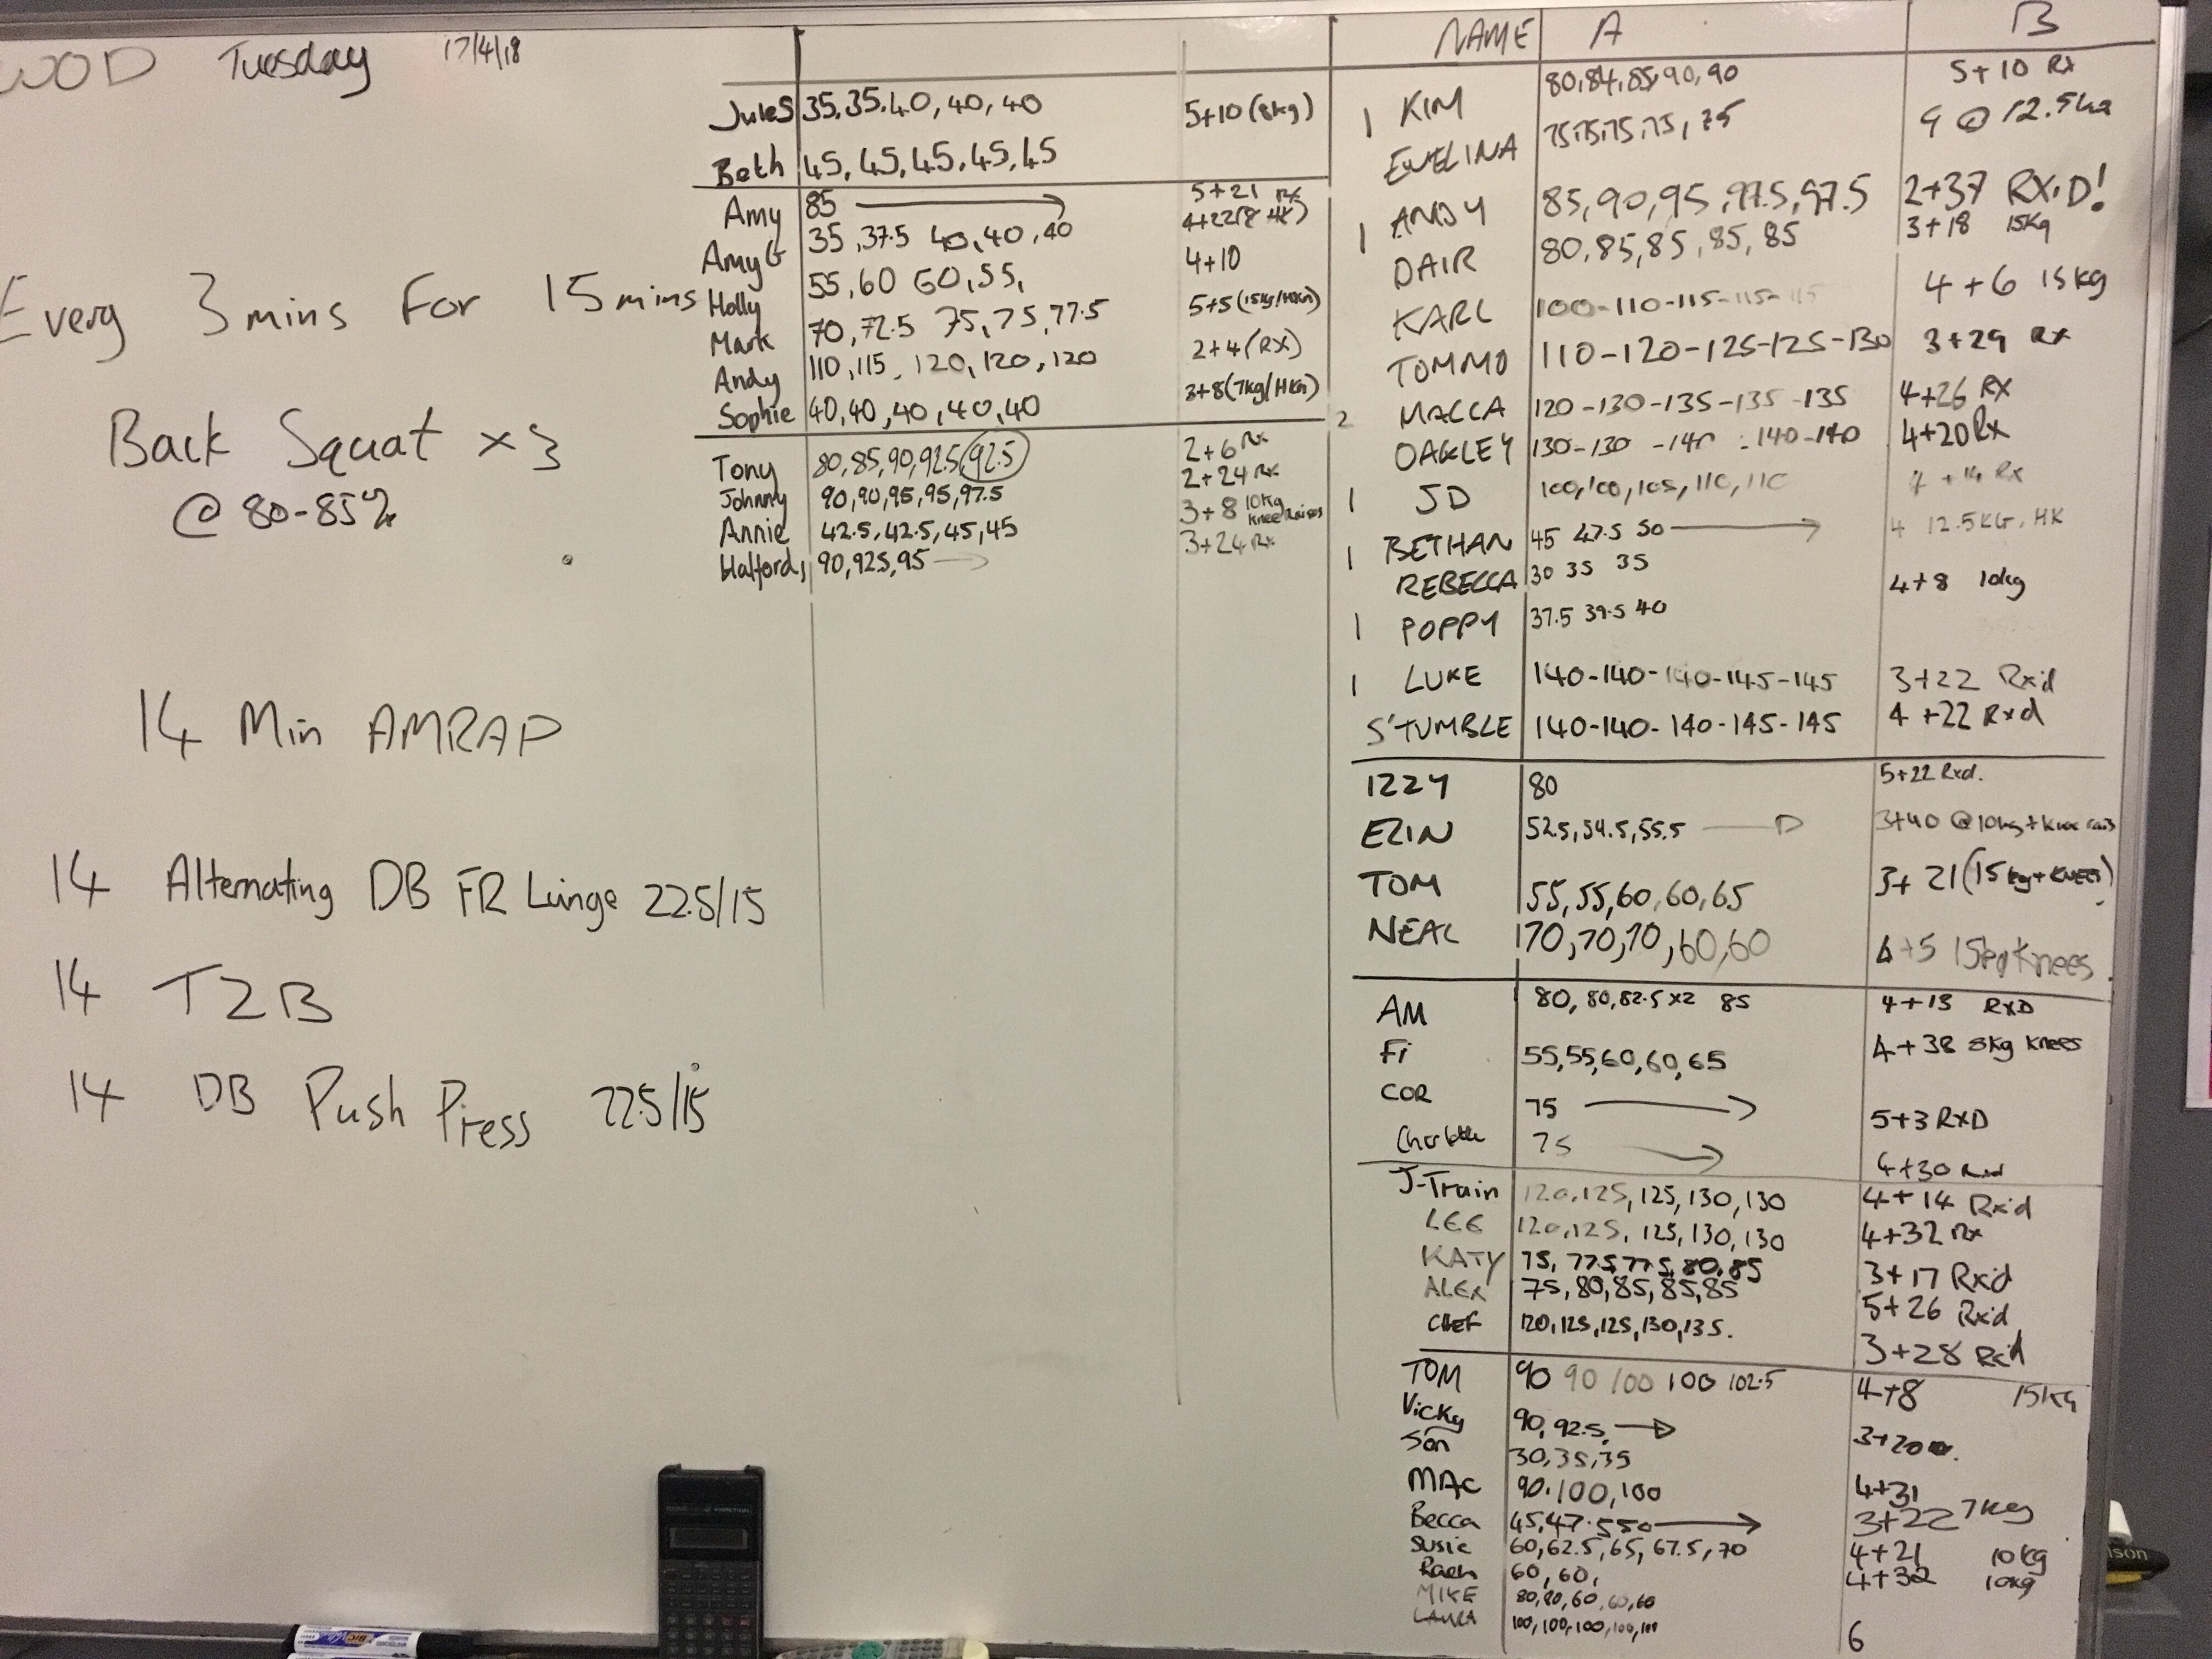 WOD Tuesday 17/4/18
Every 3 mins For 15 mins
Back Squat x 3
@ 80-85%
14 Min AMRAP
14 Alternating DB FR Lunge 22.5/15
14 T2B
14 DB Push Press 22.5/15
Jules 35, 35, 40, 40, 40 5+10 (8kg)
Beth 45, 45, 45, 45, 45
Amy 85 → 5+21 Rx
Amy G 35, 37.5 40, 40, 40 4+22 (8 HK)
Holly 55, 60 60, 55, 4+10
Mark 70, 72.5 75, 75, 77.5 5+5 (15kg/HKn)
Andy 110, 115, 120, 120, 120 2+4 (RX)
Sophie 40, 40, 40, 40, 40 3+8 (7kg/HKn)
Tony 80, 85, 90, 92.5, 92.5 2+6 Rx
Johnny 90, 90, 95, 95, 97.5 2+24 Rx
Annie 42.5, 42.5, 45, 45 3+8 10kg Knee Raises
Halford, 90, 92.5, 95 → 3+24 Rx
NAME A B
1 KIM 80, 84, 85, 90, 90 5+10 Rx
EWELINA 75, 75, 75, 75, 75 9 @ 12.5kg
ANDY 85, 90, 95, 97.5, 97.5 2+37 RX'D!
1 DAIR 80, 85, 85, 85, 85 3+18 15kg
KARL 100-110-115-115-115 4+6 15kg
TOMMO 110-120-125-125-130 3+29 Rx
2 MACCA 120-130-135-135-135 4+26 RX
OAKLEY 130-130-140-140-140 4+20 Rx
1 JD 100, 100, 105, 110, 110 +14 Rx
1 BETHAN 45 47.5 50 → 4 12.5KG. HK
REBECCA 30 35 35 4+8 10kg
1 POPPY 37.5 39.5 40
1 LUKE 140-140-140-145-145 3+22 Rx'd
S'TUMBLE 140-140-140-145-145 4+22 Rxd
IZZY 80 5+22 Rxd.
ERIN 52.5, 54.5, 55.5 → 3+40 @10kg + knee rais
TOM 55, 55, 60, 60, 65 3+21 (15kg+KNEES)
NEAL 70, 70, 70, 60, 60 4+5 15kg Knees
AM 80, 80, 82.5 x2 85 4+13 RxD
Fi 55, 55, 60, 60, 65 4+38 8kg knees
COR 75 → 5+3 RxD
Charlotte 75 → 4+30 Rxd
J-Train 120, 125, 125, 130, 130 4+14 Rx'd
LEE 120, 125, 125, 130, 130 4+32 Rx
KATY 75, 77.5, 77.5, 80, 85 3+17 Rx'd
ALEX 75, 80, 85, 85, 85 5+26 Rx'd
CHEF 120, 125, 125, 130, 135. 3+28 Rx'd
TOM 90 90 100 100 102.5 4+8 15kg
Vicky 90, 92.5, → 3+20
Son 30, 35, 35
MAC 90, 100, 100 4+31
Becca 45, 47.5 50 → 3+22 7kg
Susie 60, 62.5, 65, 67.5, 70 4+21 10kg
60, 60, 4+32 10kg
MIKE 80, 80, 60, 60, 60
LAURA 100, 100, 100, 100, 100 6